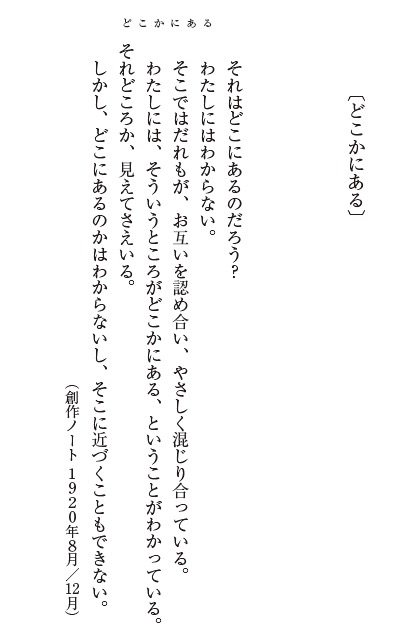 どこかにある
〔どこかにある〕
それはどこにあるのだろう？
わたしにはわからない。
そこではだれもが、お互いを認め合い、やさしく混じり合っている。
わたしには、そういうところがどこかにある、ということがわかっている。
それどころか、見えてさえいる。
しかし、どこにあるのかはわからないし、そこに近づくこともできない。
（創作ノート 1920年8月／12月）